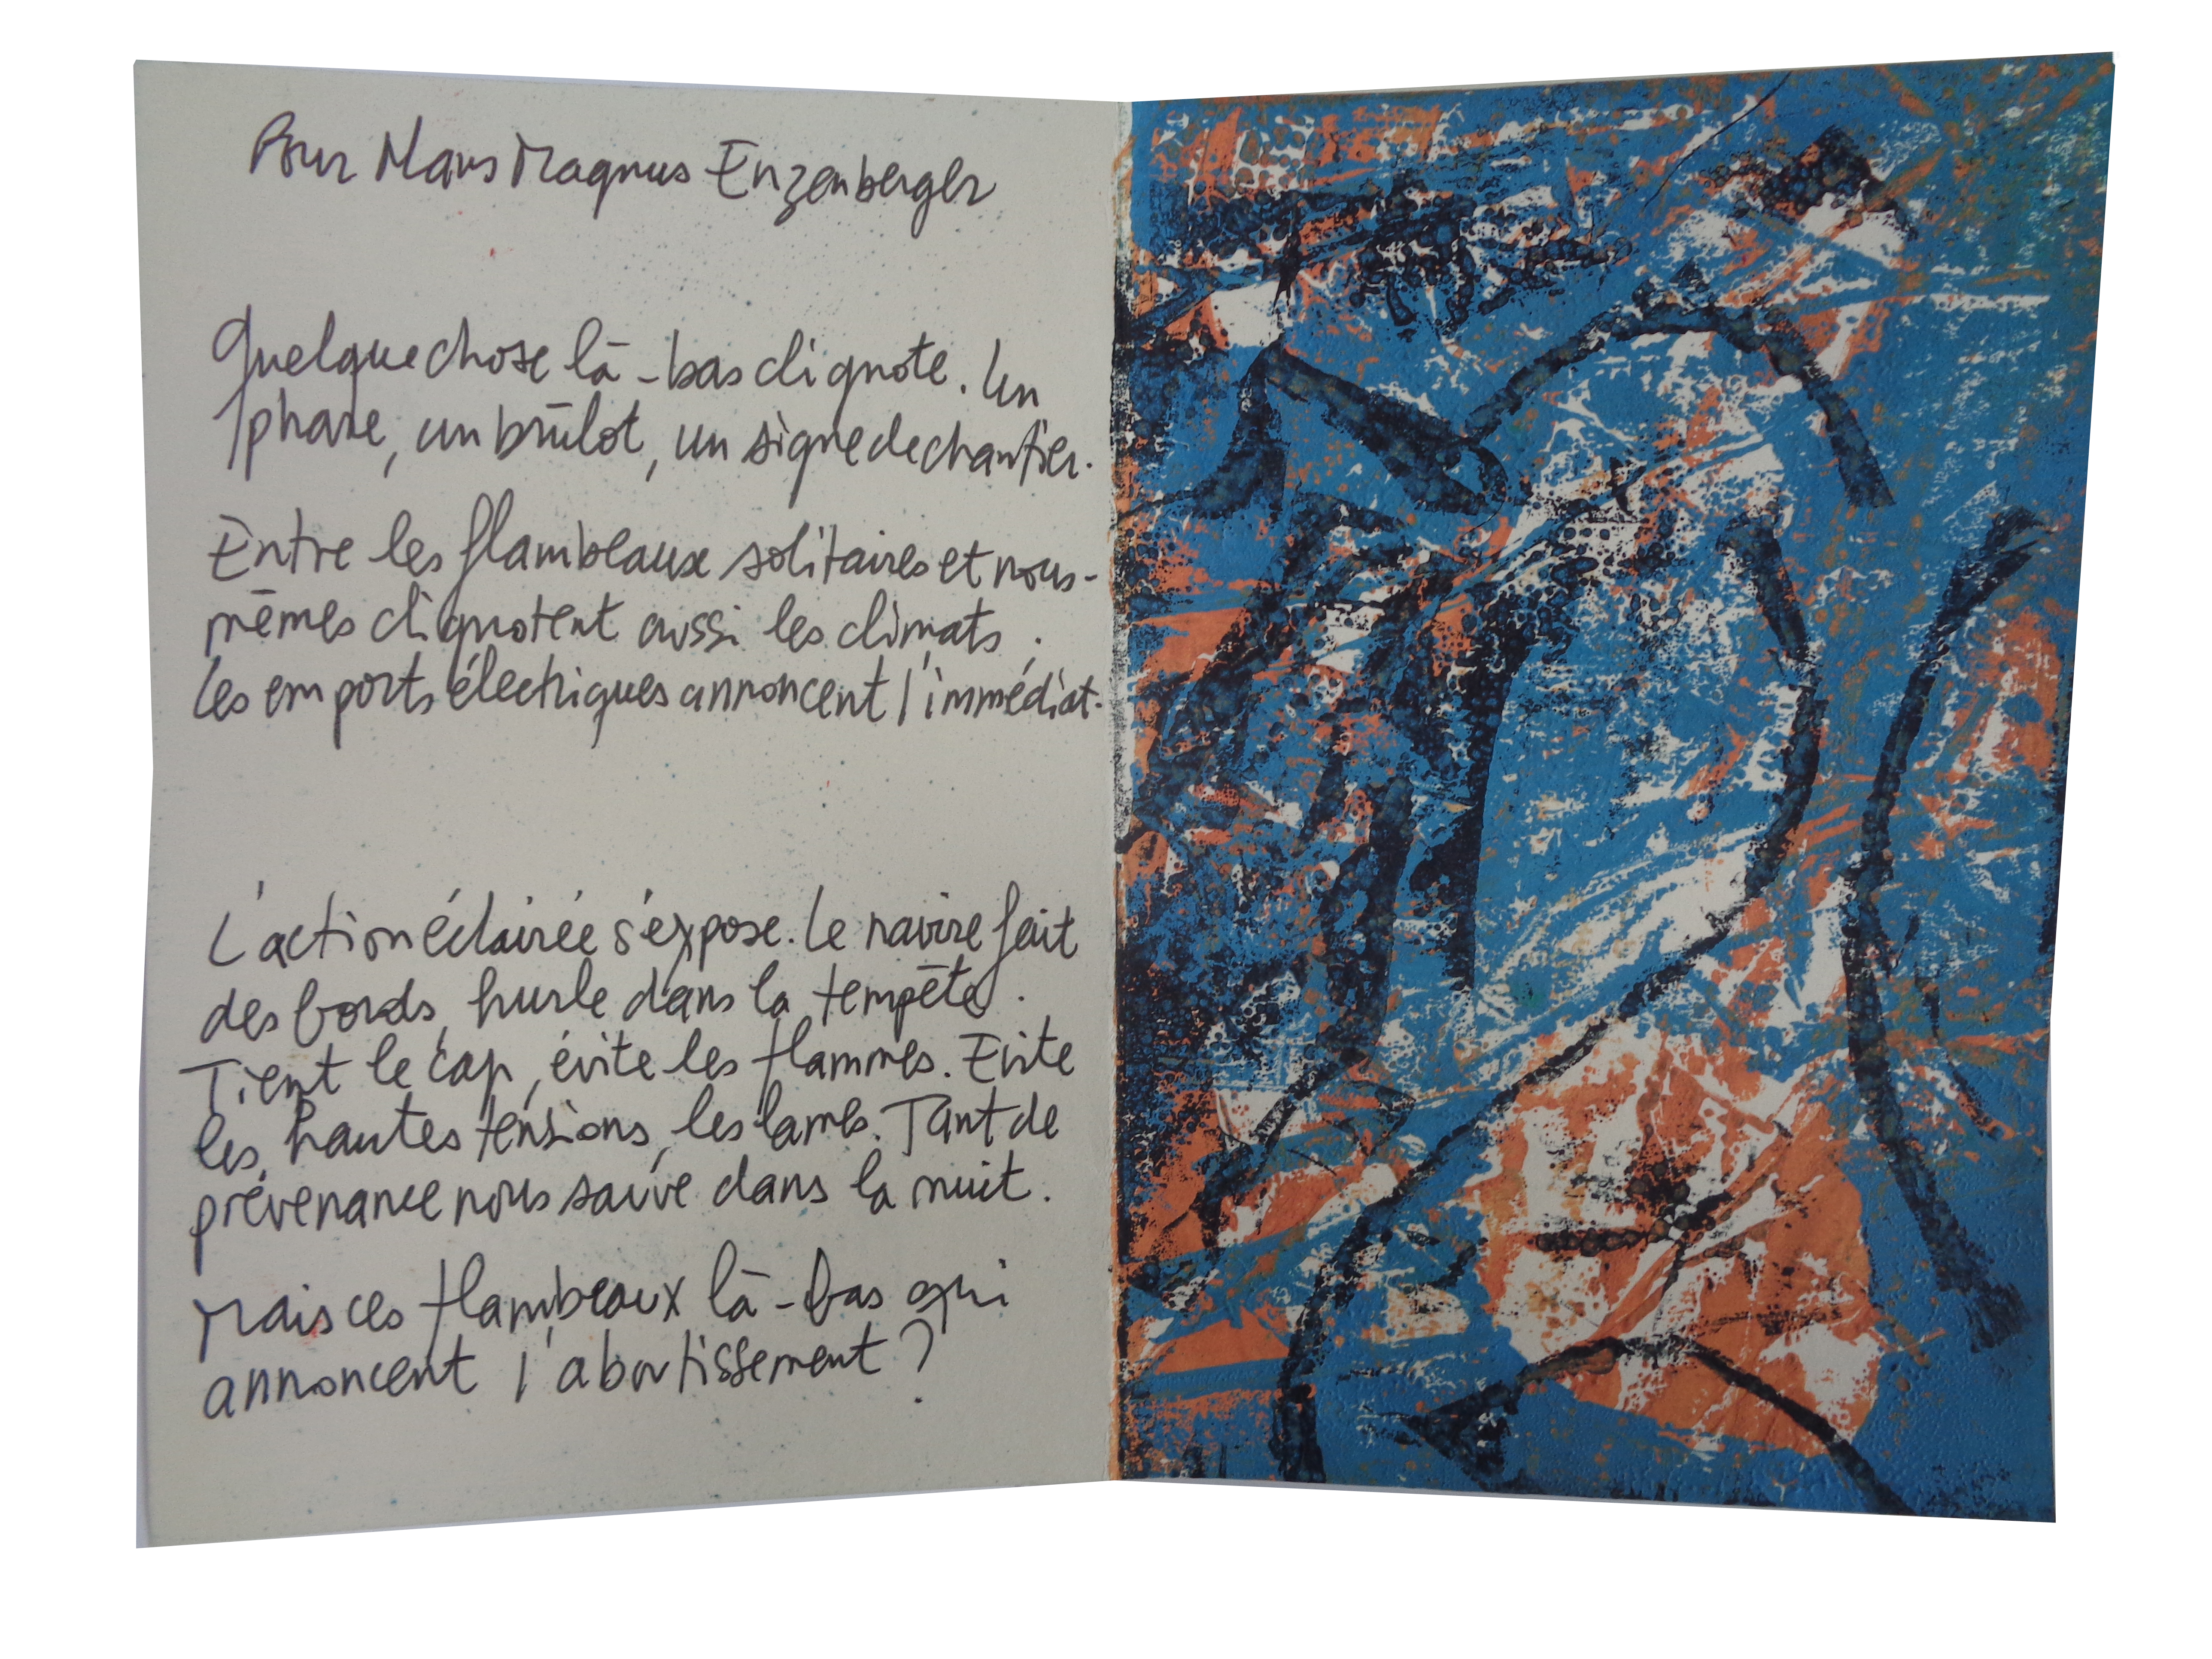 Pour Hans Magnus Enzenberger
Quelque chose là-bas clignote. Un
phare, un brûlot, un signe de chantier.
Entre les flambeaux solitaires et nous-
mêmes clignotent aussi les climats.
Les emports électriques annoncent l'immédiat.
L'action éclairée s'expose. Le navire fait
des bords, hurle dans la tempête.
Tient le cap, évite les flammes. Evite
les hautes tensions, les lames. Tant de
prévenance nous sauve dans la nuit.
Mais ces flambeaux là-bas qui
annoncent l'aboutissement ?